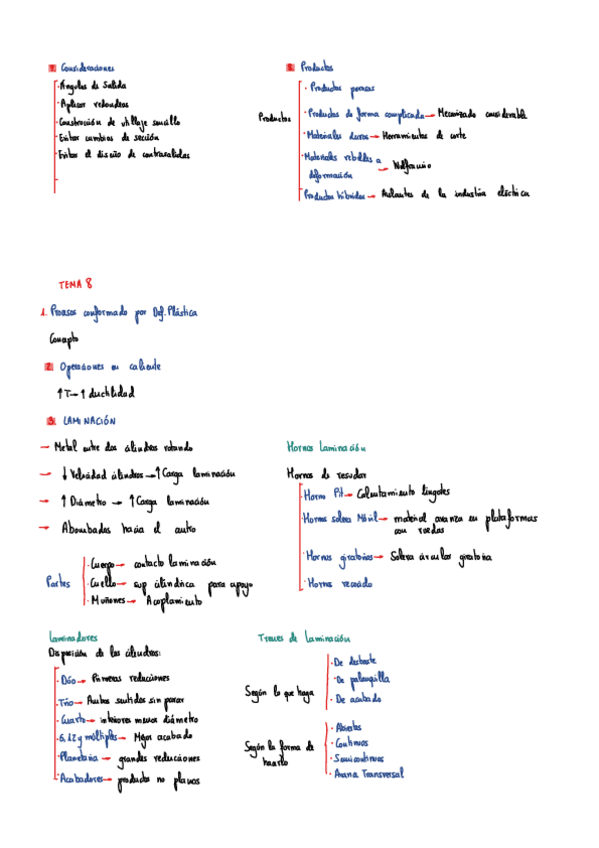 7. Consideraciones
· Ángulos de Salida
· Aplicar redondeos
· Construcción de utillaje sencillo
· Evitar cambios de sección
· Evitar el diseño de contrasalidas
8. Productos
Productos
· Productos porosos
· Productos de forma complicada → Mecanizado considerable
· Materiales duros → Herramientas de corte
· Materiales rebeldes a deformación → Wolframio
· Productos híbridos → Aislantes de la industria eléctrica
TEMA 8
1. Procesos conformado por Def. Plástica
Concepto
2. Operaciones en caliente
↑T → ↑ ductilidad
3. LAMINACIÓN
→ Metal entre dos cilindros rotando
→ ↓ Velocidad cilindros → ↑ Carga laminación
→ ↑ Diámetro → ↑ Carga laminación
→ Abombados hacia el centro
Partes
· Cuerpo → contacto laminación
· Cuello → sup cilíndrica para apoyo
· Muñones → Acoplamiento
Hornos Laminación
Hornos de recodar
· Horno Pit → Calentamiento lingotes
· Hornos solera Móvil → material avanza en plataformas
con ruedas
· Hornos giratorios → Solera circular giratoria
· Hornos recocido
Laminadores
Disposición de los cilindros:
· Dúo → Primeras reducciones
· Trío → Ambos sentidos sin parar
· Cuarto → interiores menor diámetro
· 6, 12 y múltiples → Mejor acabado
· Planetario → grandes reducciones
· Acabadores → producto no planos
Trenes de Laminación
Según lo que haga
· De desbaste
· De palanquilla
· De acabado
Según la forma de
hacerlo
· Abiertos
· Continuos
· Semicontinuos
· Avance Transversal